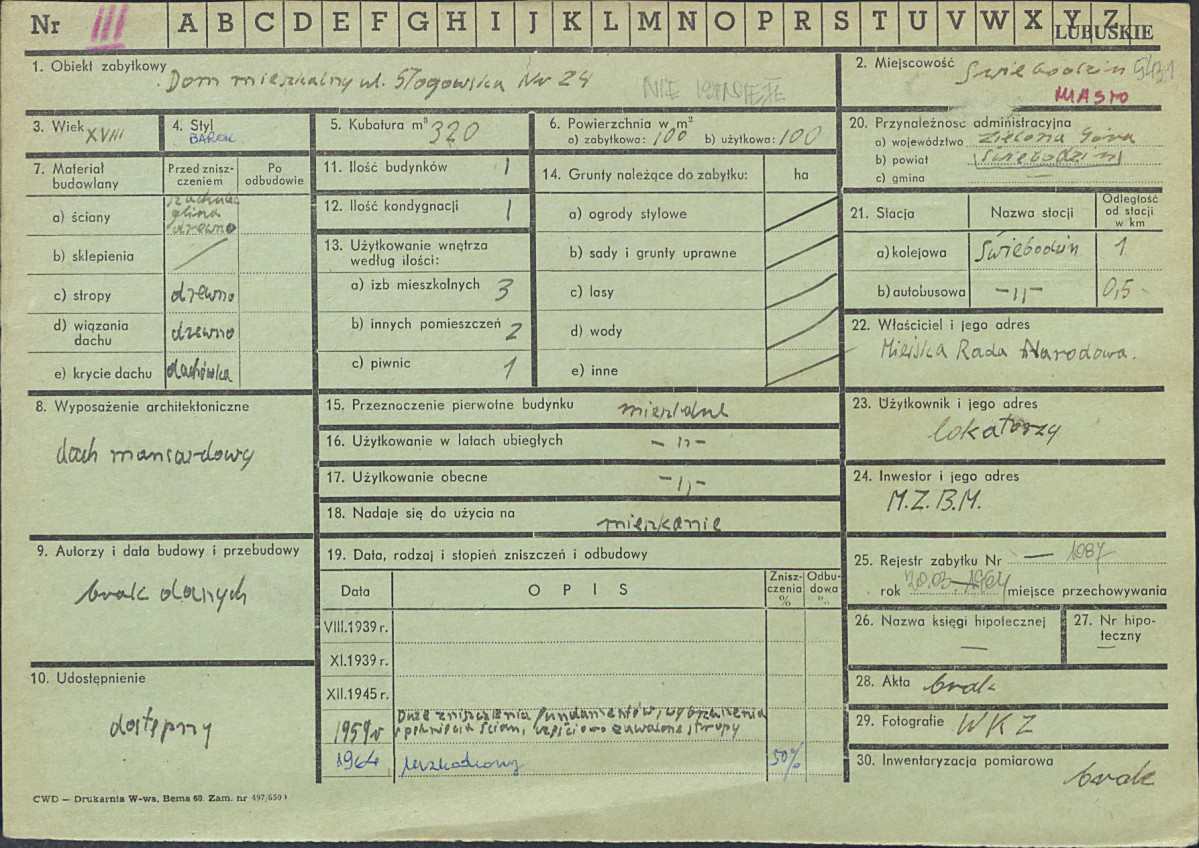 Nr III A B C D E F G H I J K L M N O P R S T U V W X Y Z
LUBUSKIE
1. Obiekt zabytkowy Dom mieszkalny ul. Głogowska Nr 24
NIE ISTNIEJE
2. Miejscowość Świebodzin
MIASTO
3. Wiek XVIII
4. Styl BAROK
5. Kubatura m³ 320
6. Powierzchnia w m²
a) zabytkowa: 100 b) użytkowa: 100
20. Przynależność administracyjna
a) województwo Zielona Góra
b) powiat Świebodzin
c) gmina —
7. Materiał budowlany
Przed zniszczeniem
Po odbudowie
a) ściany
glina
drewno
b) sklepienia
c) stropy drewno
d) wiązania dachu drewno
e) krycie dachu dachówka
11. Ilość budynków 1
12. Ilość kondygnacji 1
13. Użytkowanie wnętrza według ilości:
a) izb mieszkalnych 3
b) innych pomieszczeń 2
c) piwnic 1
14. Grunty należące do zabytku: ha
a) ogrody stylowe
b) sady i grunty uprawne
c) lasy
d) wody
e) inne
21. Stacja Nazwa stacji Odległość od stacji w km
a) kolejowa Świebodzin 1
b) autobusowa —„— 0,5
22. Właściciel i jego adres
Miejska Rada Narodowa.
8. Wyposażenie architektoniczne
dach mansardowy
15. Przeznaczenie pierwotne budynku mieszkalne
16. Użytkowanie w latach ubiegłych —„—
17. Użytkowanie obecne —„—
18. Nadaje się do użycia na mieszkanie
23. Użytkownik i jego adres
lokatorzy
24. Inwestor i jego adres
M.Z.B.M.
9. Autorzy i data budowy i przebudowy
brak danych
19. Data, rodzaj i stopień zniszczeń i odbudowy
Data OPIS Zniszczenia % Odbudowa %
VIII.1939 r.
XI.1939 r.
XII.1945 r.
1959 r Duże zniszczenia fundamentów, wybrzuszenia
i pęknięcia ścian, częściowo zawalone stropy
1964 uszkodzony 50%
25. Rejestr zabytku Nr — 1087
rok 20.03.1964 miejsce przechowywania
26. Nazwa księgi hipotecznej —
27. Nr hipoteczny —
10. Udostępnienie
dostępny
28. Akta brak
29. Fotografie WKZ
30. Inwentaryzacja pomiarowa
brak
CWD — Drukarnia W-wa, Bema 60. Zam. nr 497/650